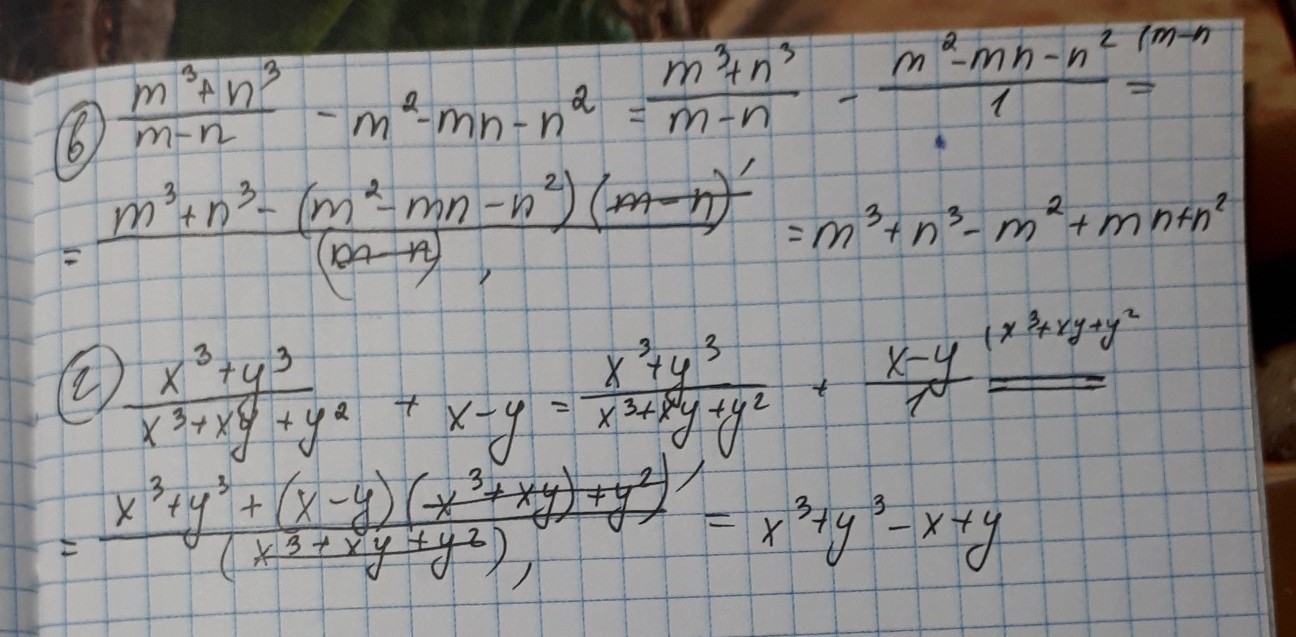 в) (m³+n³)/(m-n) - m²-mn-n² = (m³+n³)/(m-n) - (m²-mn-n²)/1 (m-n =
= (m³+n³-(m²-mn-n²)(m-n)')/(m-n), = m³+n³-m²+mn+n²
г) (x³+y³)/(x³+xy+y²) + x-y = (x³+y³)/(x³+xy+y²) + (x-y)/1 (x³+xy+y² =
= (x³+y³+(x-y)(-x³+xy)+y²)')/(x³+xy+y²), = x³+y³-x+y